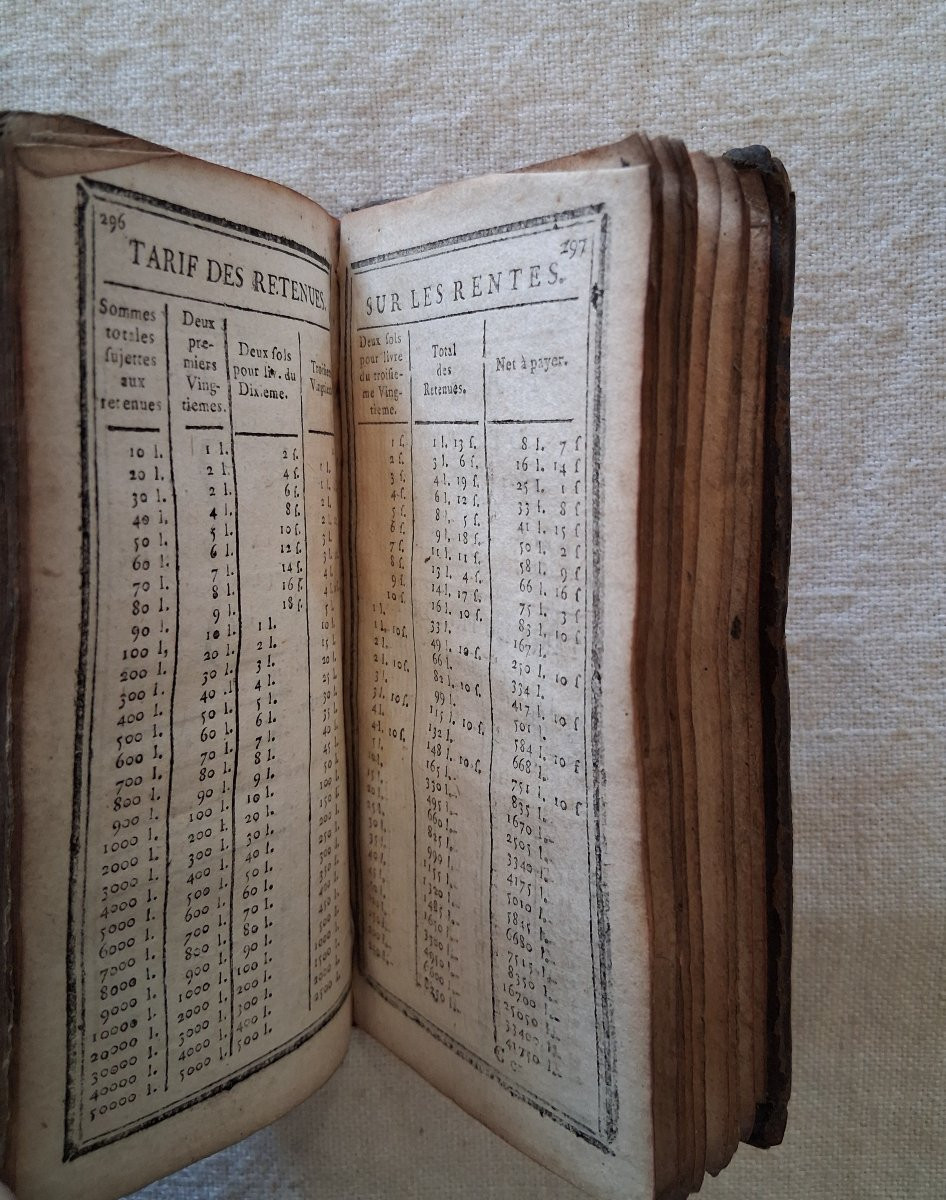 296
TARIF DES RETENUES.
Sommes
totales
ſujettes
aux
retenues
Deux
pre-
miers
Ving-
tiemes.
Deux ſols
pour liv. du
Dixieme.
10 l. 1 l. 2 ſ.
20 l. 2 l. 4 ſ. 1 l.
30 l. 2 l. 6 ſ. 1 l.
40 l. 4 l. 8 ſ. 2 l.
50 l. 5 l. 10 ſ. 2 l.
60 l. 6 l. 12 ſ. 3 l.
70 l. 7 l. 14 ſ. 3 l.
80 l. 8 l. 16 ſ. 4 l.
90 l. 9 l. 18 ſ. 4 l.
100 l. 10 l. 1 l. 5 l.
200 l. 20 l. 2 l. 10 l.
300 l. 30 l. 3 l. 15 l.
400 l. 40 l. 4 l. 20 l.
500 l. 50 l. 5 l. 25 l.
600 l. 60 l. 6 l. 30 l.
700 l. 70 l. 7 l. 35 l.
800 l. 80 l. 8 l. 40 l.
900 l. 90 l. 9 l. 45 l.
1000 l. 100 l. 10 l. 50 l.
2000 l. 200 l. 20 l. 100
3000 l. 300 l. 30 l. 150
4000 l. 400 l. 40 l. 200
5000 l. 500 l. 50 l. 250
6000 l. 600 l. 60 l. 300
7000 l. 700 l. 70 l. 350
8000 l. 800 l. 80 l. 400
9000 l. 900 l. 90 l. 450
10000 l. 1000 l. 100 l. 500
20000 l. 2000 l. 200 l. 1000
30000 l. 3000 l. 300 l. 1500
40000 l. 4000 l. 400 l. 2000
50000 l. 5000 l. 500 l. 2500
297
SUR LES RENTES.
Deux ſols
pour livre
du troiſie-
me Ving-
tieme.
Total
des
Retenues.
Net à payer.
1 ſ. 1 l. 13 ſ. 8 l. 7 ſ
2 ſ. 3 l. 6 ſ. 16 l. 14 ſ
3 ſ. 4 l. 19 ſ. 25 l. 1 ſ
4 ſ. 6 l. 12 ſ. 33 l. 8 ſ
5 ſ. 8 l. 5 ſ. 41 l. 15 ſ
6 ſ. 9 l. 18 ſ. 50 l. 2 ſ
7 ſ. 11 l. 11 ſ. 58 l. 9 ſ
8 ſ. 13 l. 4 ſ. 66 l. 16 ſ
9 ſ. 14 l. 17 ſ. 75 l. 3 ſ
10 ſ. 16 l. 10 ſ. 83 l. 10 ſ
1 l. 33 l. 167 l.
1 l. 10 ſ. 49 l. 10 ſ. 250 l. 10 ſ
2 l. 66 l. 334 l.
2 l. 10 ſ. 82 l. 10 ſ. 417 l. 10 ſ
3 l. 99 l. 501 l.
3 l. 10 ſ. 115 l. 10 ſ. 584 l. 10 ſ
4 l. 132 l. 668 l.
4 l. 10 ſ. 148 l. 10 ſ. 751 l. 10 ſ
5 l. 165 l. 835 l.
330 l. 1670 l.
495 l. 2505 l.
660 l. 3340 l.
825 l. 4175 l.
990 l. 5010 l.
1155 l. 5845 l.
1320 l. 6680 l.
1485 l. 7515 l.
1650 l. 8350 l.
3300 l. 16700 l.
4950 l. 25050 l.
6600 l. 33400 l.
8250 l. 41750 l.